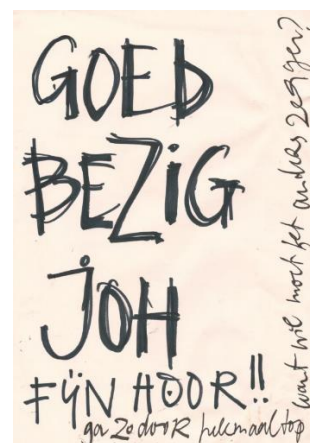 GOED
BEZiG
JOH
FIJN HOOR!!
ga zo door helemaal top
want wie moet het anders zeggen?